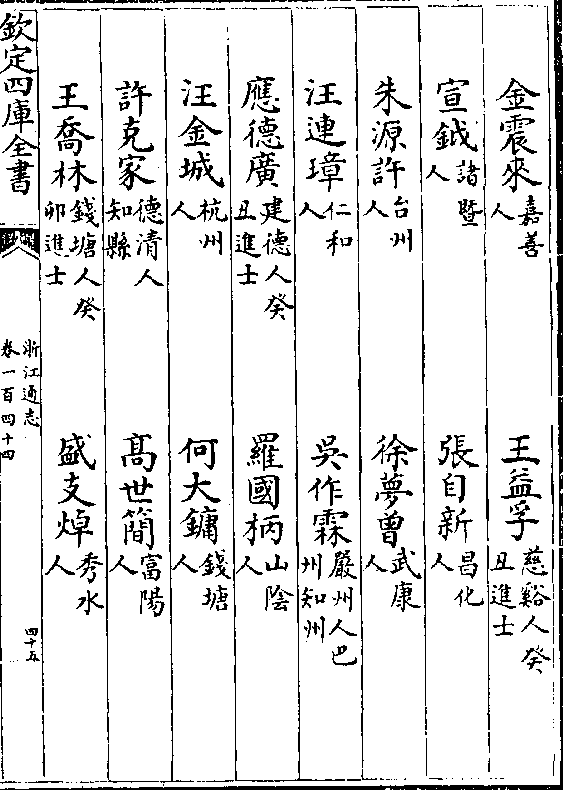 金震來嘉善人　王益孚慈谿人癸丑進士
宣鉞諸暨人　張自新昌化人
朱源許台州人　徐夢曾武康人
汪連璋仁和人　吳作霖嚴州人巴州知州
應德廣建德人癸丑進士　羅國柄山陰人
汪金城杭州人　何大鏞錢塘人
許克家德清人知縣　髙世簡富陽人
王喬林錢塘人癸卯進士　盛支焯秀水人
欽定四庫全書
浙江通志
卷一百四十四
四十五